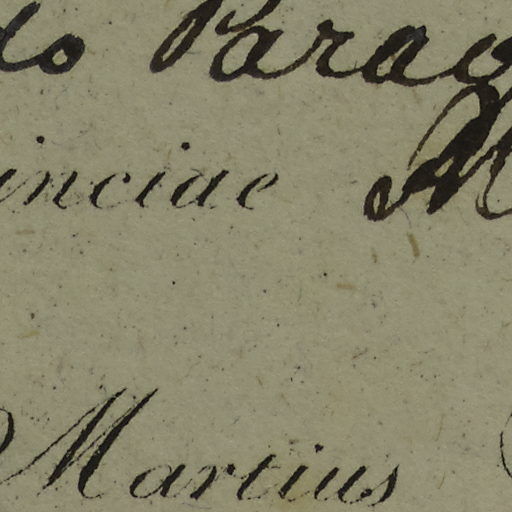 do Parag
inciae M
Martius